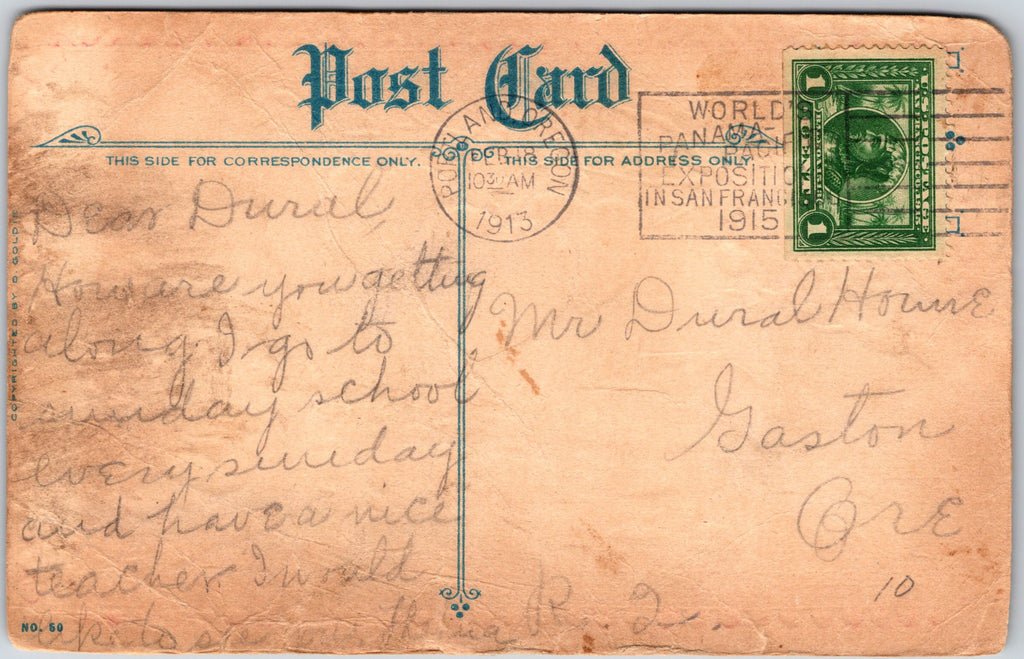 Post Card
THIS SIDE FOR CORRESPONDENCE ONLY.
THIS SIDE FOR ADDRESS ONLY.
PORTLAND OREGON
FEB 18
1030 AM
1913
WORLD'S
PANAMA-
PACIFIC
EXPOSITION
IN SAN FRANCISCO
1915
U.S. POSTAGE
1 CENT 1
Dear Dural
How are you getting
along I go to
sunday school
every sunday
and have a nice
teacher I would
like to see
Mr Dural Howe
Gaston
Ore
R. 2.
10
COPYRIGHTED BY
NO. 50